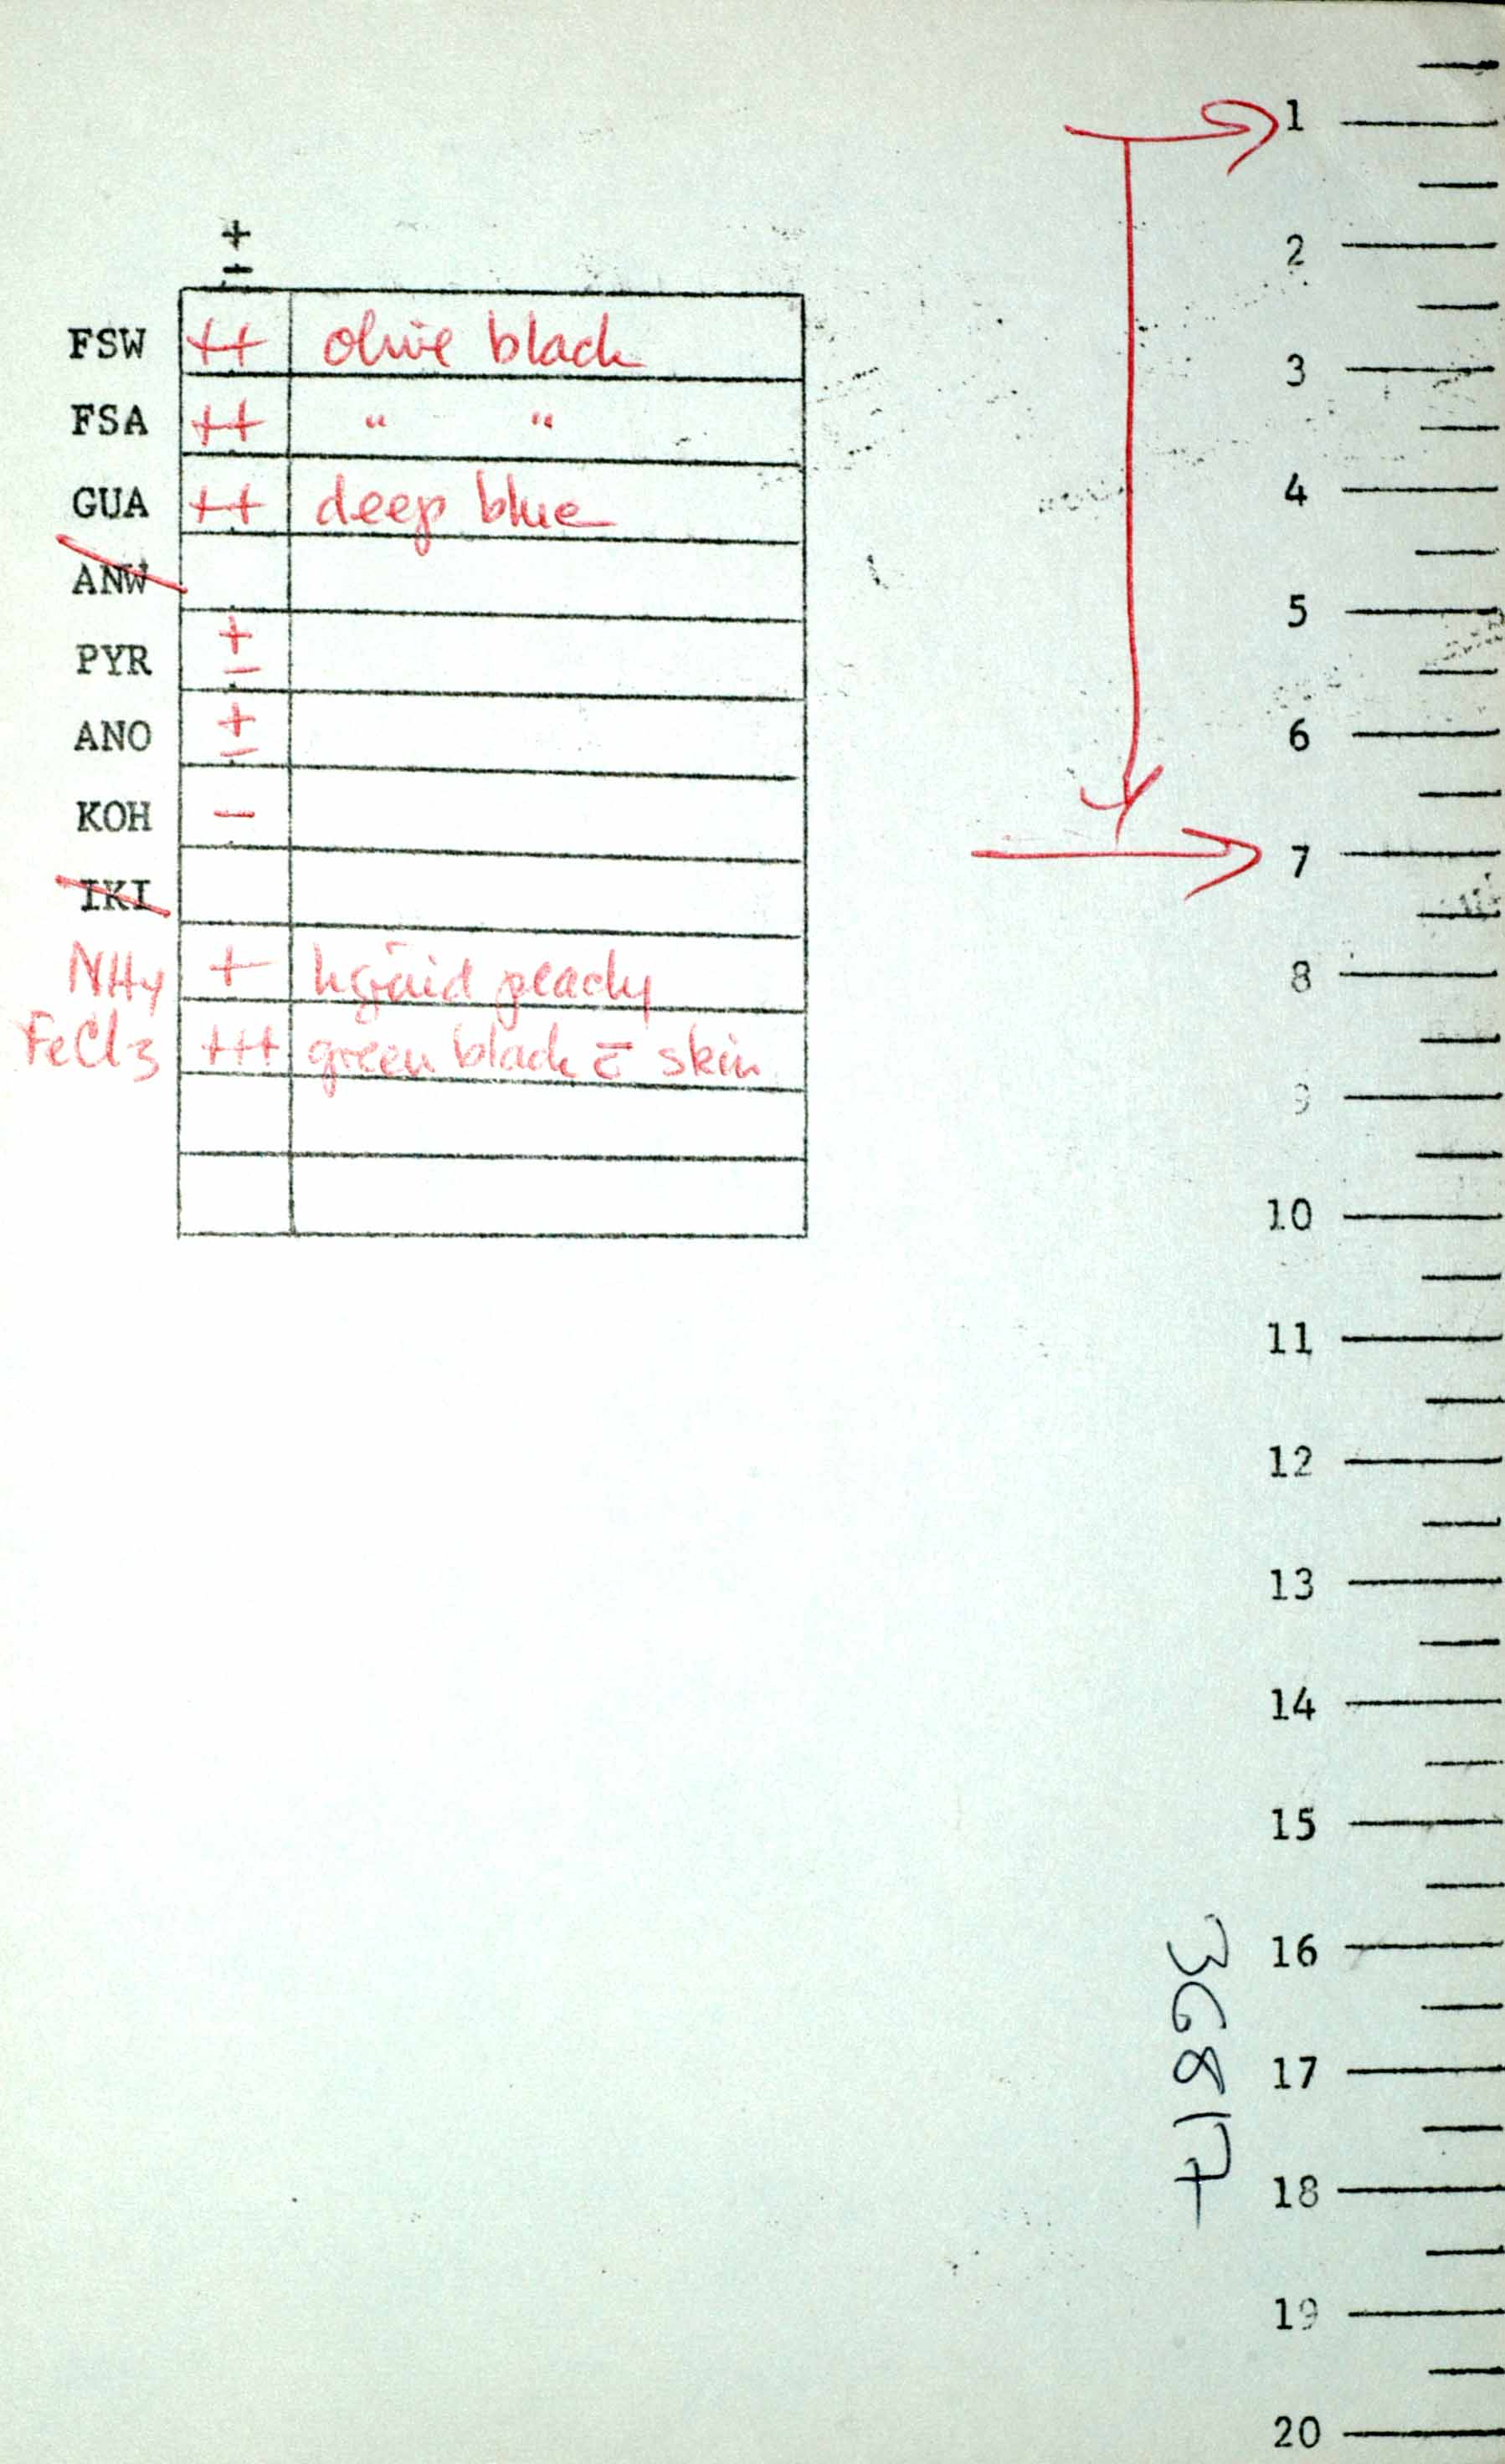 +
-
FSW ++ olive black
FSA ++ " "
GUA ++ deep blue
ANW
PYR ±
ANO ±
KOH -
IKI
NH4 + liquid peachy
FeCl3 +++ green black c̄ skin
1
2
3
4
5
6
7
8
9
10
11
12
13
14
15
16
17
18
19
20
36817